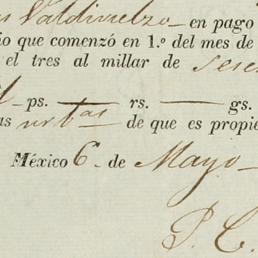 s Valdivielso — en pago
io que comenzó en 1.º del mes de
el tres al millar de sesen
ps. — rs. — gs.
as urbas de que es propie
México 6 de Mayo
P. C.